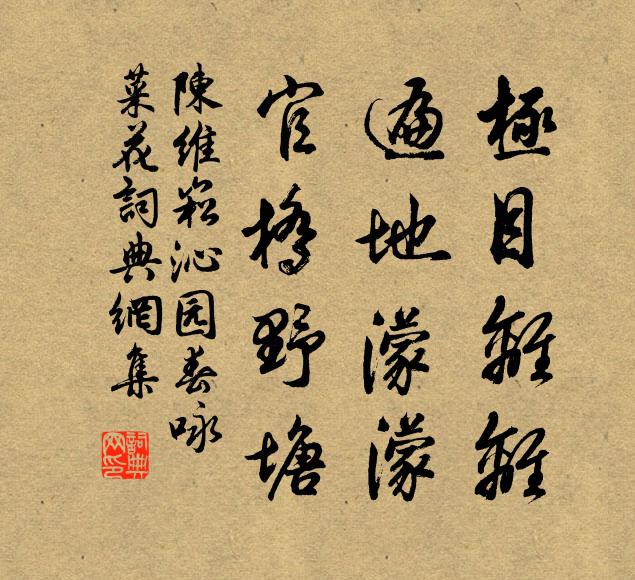 極目離離
遍地濛濛
官橋野塘
陳維崧沁园春咏
菜花詞典網集
詞典网印